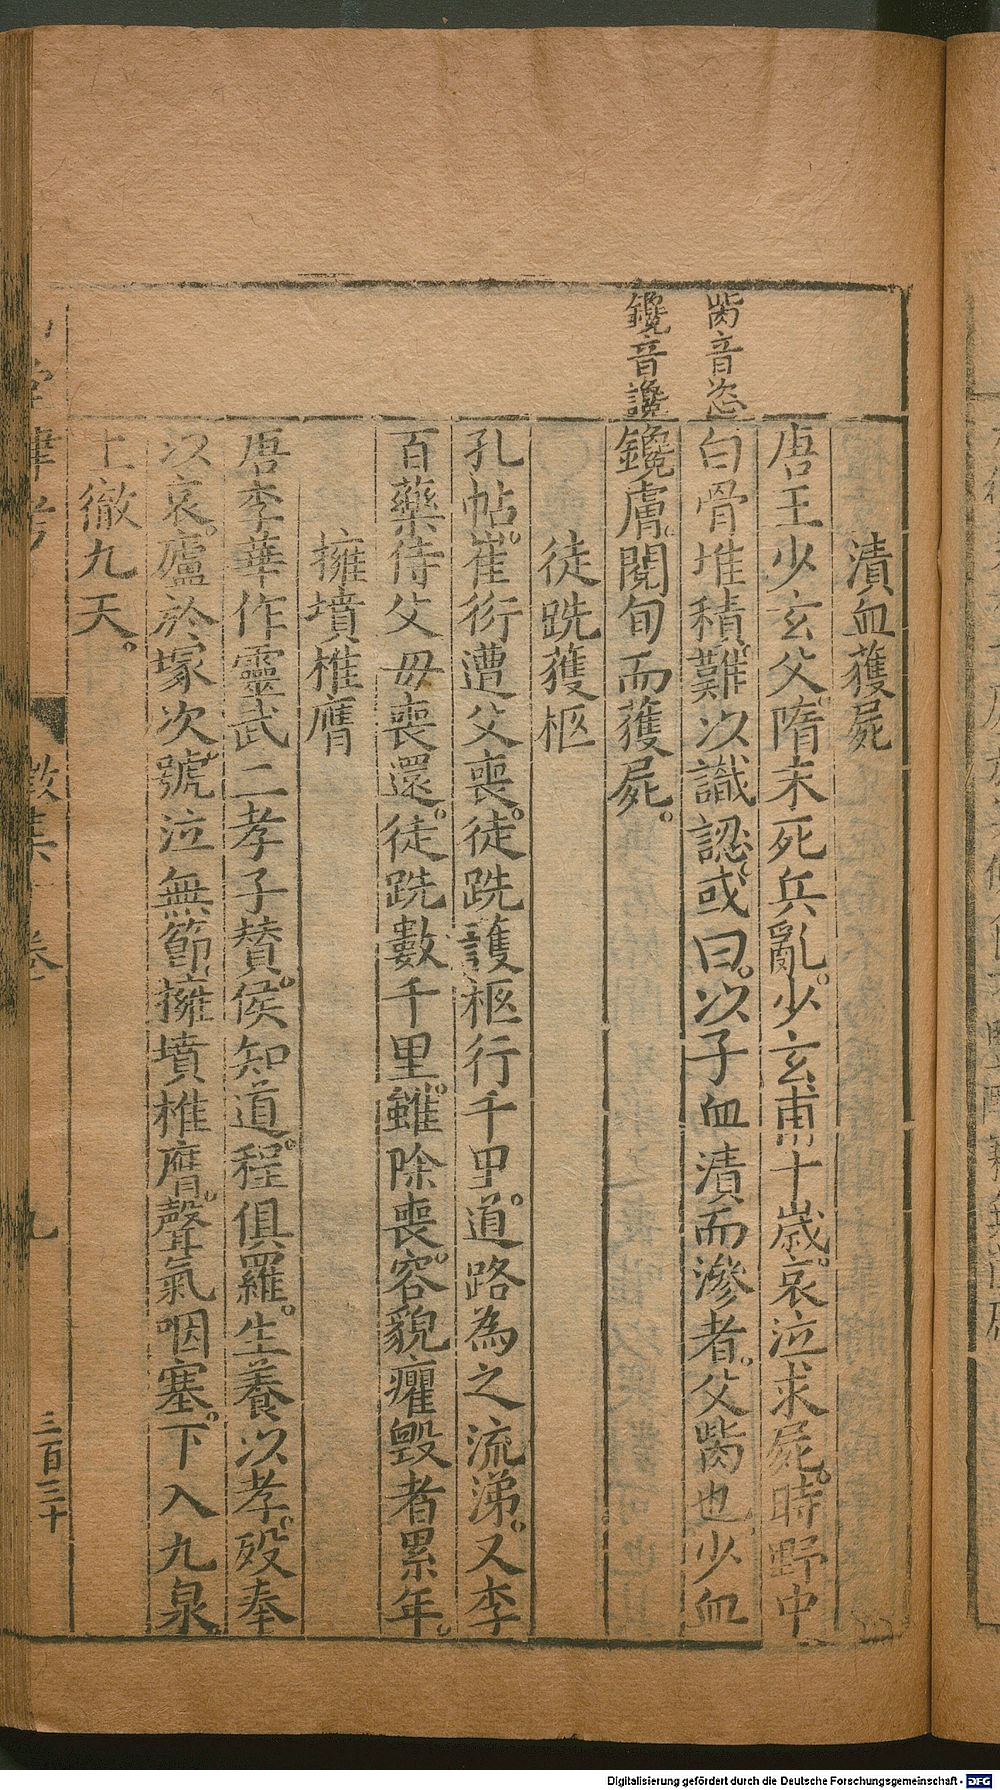 胔音恣
鑱音讒
漬血獲屍
唐王少玄父隋末死兵亂少玄甫十歲哀泣求屍時野中
白骨堆積難以識認或曰以子血漬而滲者父胔也少血
鑱膚閱旬而獲屍
徒跣獲柩
孔帖崔衍遭父喪徒跣護柩行千里道路為之流涕又李
百藥侍父母喪還徒跣數千里雖除喪容貌癯毀者累年
擁墳椎膺
唐李華作靈武二孝子賛侯知道程俱羅生養以孝歿奉
以哀廬於塚次號泣無節擁墳椎膺聲氣咽塞下入九泉
上徹九天
九
三百三十
Digitalisierung gefördert durch die Deutsche Forschungsgemeinschaft - DFG